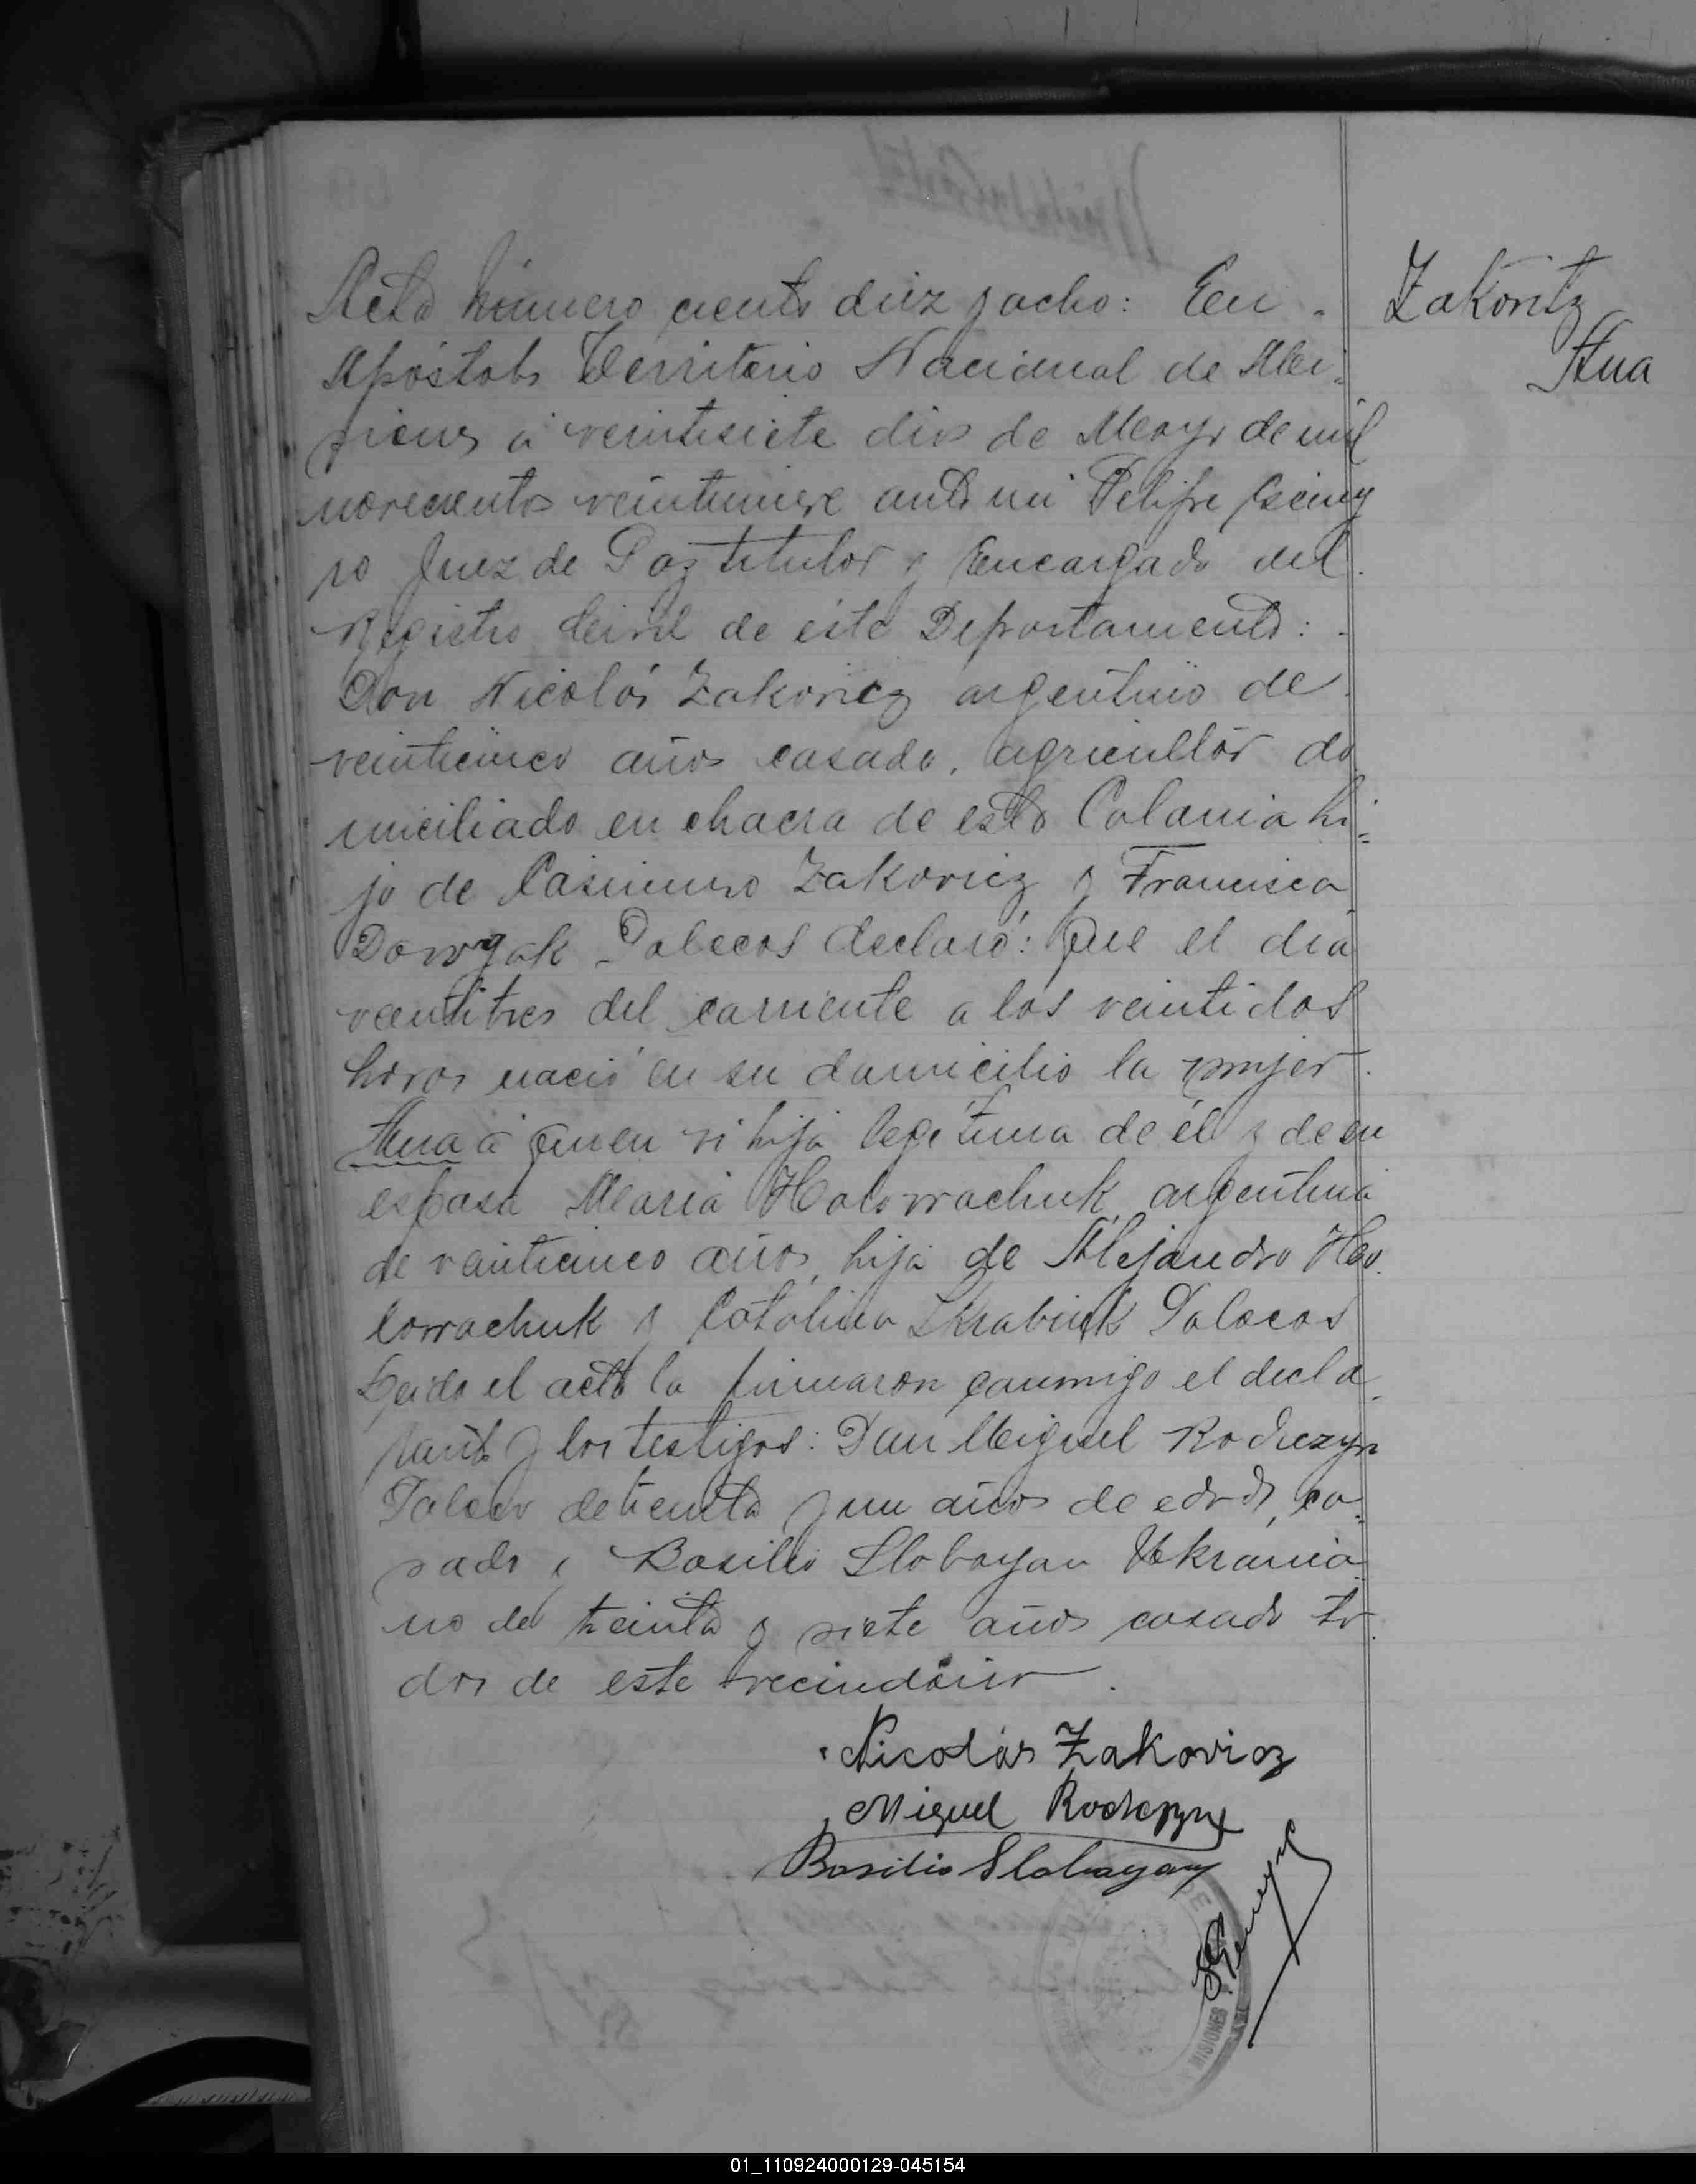 Zakovitz
Ana
Acta número ciento diez y ocho: En
Apóstoles Territorio Nacional de Mi-
siones á veintisiete dias de Mayo de mil
novecientos veintinueve ante mi Felipe
ro Juez de Paz titular y Encargado del
Registro Civil de este Departamento:
Don Nicolás Zakovicz argentino de
veinticinco años casado, agricultor do
miciliado en chacra de esta Colonia hi-
jo de Casimiro Zakovicz y Francisca
Dowgak Polacos declaró: Que el dia
veintitres del corriente a las veintidos
horas nació en su domicilio la mujer
Ana á quien vi hija legitima de él y de su
esposa Maria Holowachuk argentina
de veinticinco años, hija de Alejandro Ho-
lowachuk y Catalina Skrabiuk Polacos
Leida el acta la firmaron conmigo el decla-
rante y los testigos: Don Miguel Rodiezyn
Polaco de treinta y un años de edad, ca-
sado y Basilio Slobayan Ukrania-
no de treinta y siete años casado to-
dos de este vecindario.
Nicolás Zakovicz
Miguel
Basilio Slobayan
MISIONES
01_110924000129-045154